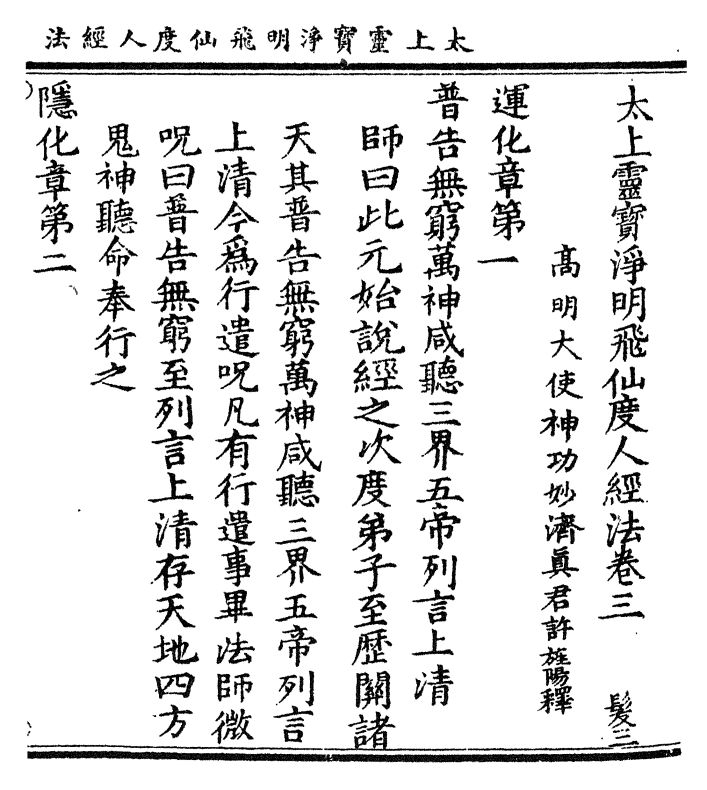 太上靈寶淨明飛仙度人經法
太上靈寶淨明飛仙度人經法卷三 髮三
高明大使神功妙濟眞君許旌陽釋
運化章第一
普告無窮萬神咸聽三界五帝列言上清
師曰此元始說經之次度弟子至歷關諸
天其普告無窮萬神咸聽三界五帝列言
上清今爲行遣呪凡有行遣事畢法師微
呪曰普告無窮至列言上清存天地四方
鬼神聽命奉行之
隱化章第二